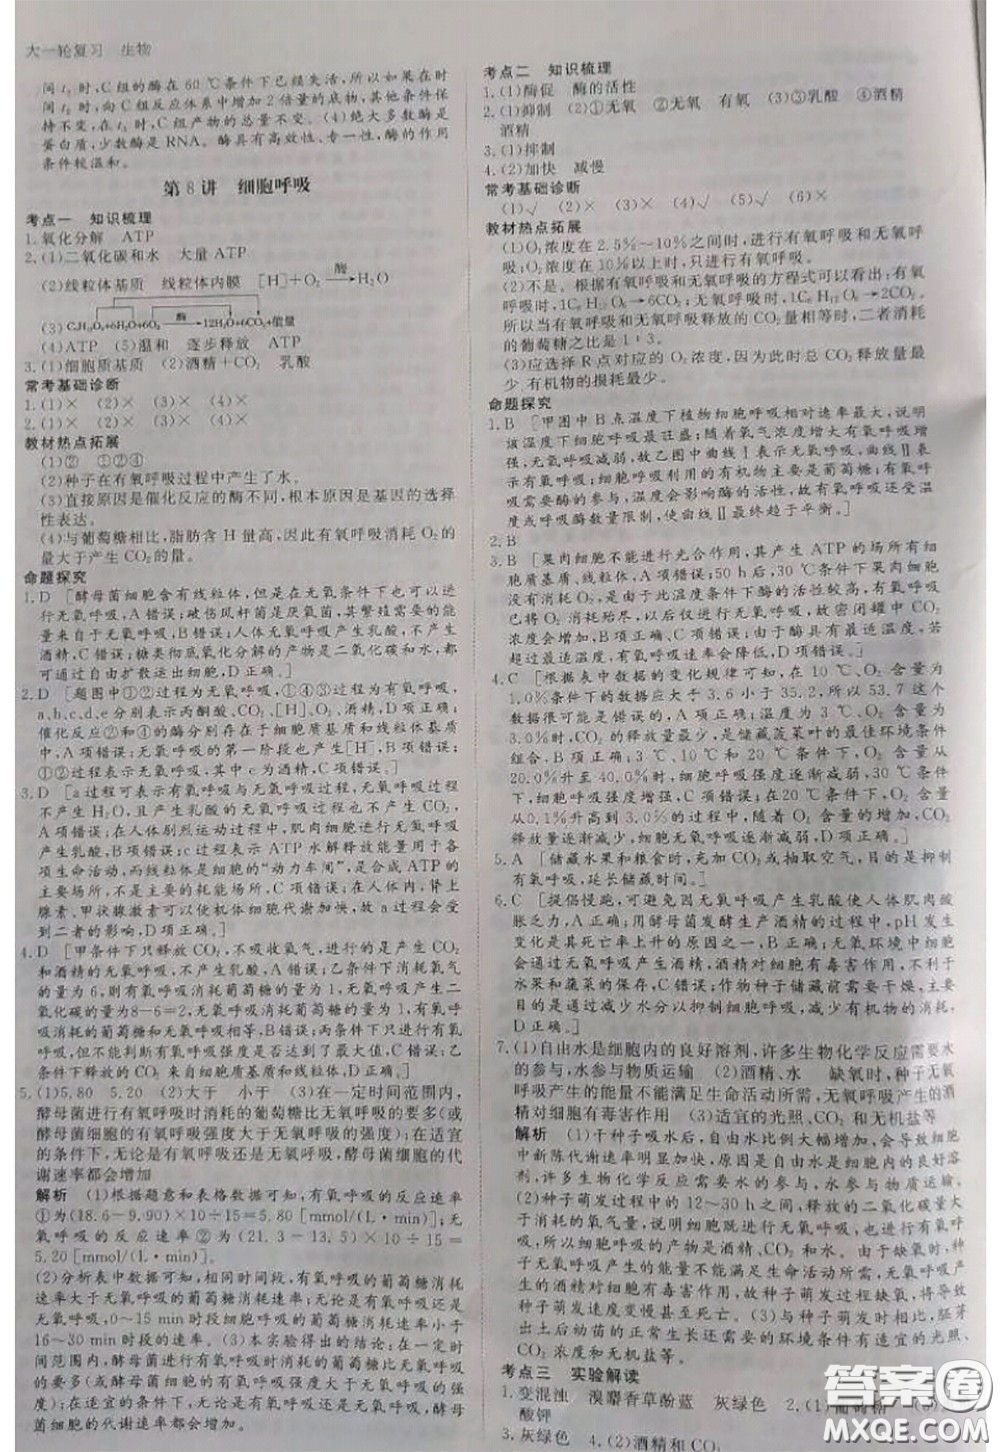 大一轮复习　生物
间 t₂ 时，C 组的酶在 60 ℃条件下已经失活，所以如果在时
间 t₂ 时，向 C 组反应体系中增加 2 倍量的底物，其他条件保
持不变，在 t₃ 时，C 组产物的总量不变。(4)绝大多数酶是
蛋白质，少数酶是 RNA。酶具有高效性、专一性，酶的作用
条件较温和。
第 8 讲　细胞呼吸
考点一　知识梳理
1.氧化分解　ATP
2.(1)二氧化碳和水　大量 ATP
(2)线粒体基质　线粒体内膜　[H]+O₂ 酶→H₂O
(3)C₆H₁₂O₆+6H₂O+6O₂ 酶→12H₂O+6CO₂+能量
(4)ATP　(5)温和　逐步释放　ATP
3.(1)细胞质基质　(2)酒精+CO₂　乳酸
常考基础诊断
1.(1)×　(2)×　(3)×　(4)×
2.(1)×　(2)×　(3)×　(4)×
教材热点拓展
(1)②　①③④
(2)种子在有氧呼吸过程中产生了水。
(3)直接原因是催化反应的酶不同，根本原因是基因的选择
性表达。
(4)与葡萄糖相比，脂肪含 H 量高，因此有氧呼吸消耗 O₂ 的
量大于产生 CO₂ 的量。
命题探究
1.D　[酵母菌细胞含有线粒体，但是在无氧条件下只进行
无氧呼吸，A 错误；破伤风杆菌是厌氧菌，其繁殖需要的能
量来自于无氧呼吸，B 错误；人体无氧呼吸产生乳酸，不产
生酒精，C 错误；糖类彻底氧化分解的产物是二氧化碳和水，
都可通过自由扩散运出细胞，D 正确。]
2.D　[题图中①②过程为无氧呼吸，①③④过程为有氧呼吸，
a、b、c、d、e 分别表示丙酮酸、CO₂、[H]、O₂、酒精，D 项正确；
催化反应②和④的酶分别存在于细胞质基质和线粒体基质
中，A 项错误；无氧呼吸的第一阶段也产生[H]，B 项错误；
①②过程为无氧呼吸，其中 e 为酒精，C 项错误。]
3.D　[a 过程可表示有氧呼吸与无氧呼吸过程，无氧呼吸过程
不产生 H₂O，且产生乳酸的无氧呼吸过程也不产生 CO₂，
A 项错误；在人体剧烈运动过程中，肌肉细胞进行无氧呼吸
产生乳酸，B 项错误；c 过程表示 ATP 水解释放能量用于各
项生命活动，而线粒体是细胞的“动力车间”，是合成 ATP 的
主要场所，不是主要的耗能场所，C 项错误；在人体内，肾上
腺素、甲状腺激素可以使细胞代谢加快，故 a 过程会受到这
二者的影响，D 项正确。]
4.D　[甲条件下只释放 CO₂，不吸收氧气，进行的是产生 CO₂
和酒精的无氧呼吸，A 错误；乙条件下，有氧呼吸消耗氧气
的量为 6，则有氧呼吸消耗葡萄糖的量是 1，无氧呼吸产生二
氧化碳的量为8－6＝2，无氧呼吸消耗葡萄糖的量是 1，有氧
呼吸消耗的葡萄糖和无氧呼吸相等，B 错误；丙条件下，只有有氧
呼吸，但不能判断有氧呼吸强度是否达到了最大，C 错误；丁
条件下产生的 CO₂ 全部来自有氧呼吸，D 正确。]
5.(1)5.80　5.20　(2)大于　小于　(3)在一定时间范围内，
酵母菌进行有氧呼吸时消耗的葡萄糖比无氧呼吸的要多(或
酵母菌细胞的有氧呼吸强度大于无氧呼吸的强度)；在适宜
的条件下，无论是有氧呼吸还是无氧呼吸，酵母菌细胞的代
谢速率都会增加
解析　(1)根据题意和表格数据可知，有氧呼吸的反应速率
①为(18.6－9.90)×10÷15＝5.80 [mmol/(L·min)]，无氧
呼吸的反应速率②为(21.3－13.5)×10÷15＝
5.20 [mmol/(L·min)]。
(2)分析表中数据可知，相同时间段，有氧呼吸的葡萄糖消耗
速率大于无氧呼吸；不论是有氧呼吸还是无氧呼吸，葡萄糖
消耗速率，0～15 min 时段的消耗速率小于
16～30 min 时段的速率。(3)本实验得出的结论：在一定时
间范围内，酵母菌进行有氧呼吸时消耗的葡萄糖比无氧呼吸
的要多；在适宜的条件下，无论是有氧呼吸还是无氧呼吸，酵母菌
细胞的代谢速率都会增加。]
考点二　知识梳理
1.(1)酶促　酶的活性
2.(1)抑制　(2)①无氧　②无氧　有氧　(3)③乳酸　④酒精
酒精
3.(1)抑制
4.(2)加快　减慢
常考基础诊断
(1)√　(2)×　(3)×　(4)√　(5)√　(6)×
教材热点拓展
(1)O₂ 浓度在 2.5%～10%之间时，进行有氧呼吸和无氧呼
吸；O₂ 浓度在 10%以上时，只进行有氧呼吸。
(2)不是。根据有氧呼吸和无氧呼吸的方程式可以看出：有氧
呼吸时，1C₆H₁₂O₆→6CO₂；无氧呼吸时，1C₆H₁₂O₆→2CO₂。
所以当有氧呼吸与无氧呼吸释放的 CO₂ 量相等时，二者消耗
的葡萄糖之比是 1∶3。
(3)应选择 R 点对应的 O₂ 浓度，因为此时总 CO₂ 释放量最
少，有机物的损耗最少。
命题探究
1.B　[甲图中 B 点温度下植物细胞呼吸相对速率最大，说明
该温度下细胞呼吸最旺盛；随着氧气浓度增大，有氧呼吸增
强，无氧呼吸减弱，故乙图中曲线Ⅰ表示无氧呼吸，曲线Ⅱ
表示有氧呼吸；细胞呼吸利用的有机物主要是葡萄糖；有氧
呼吸需要酶的参与，温度会影响酶的活性，故有氧呼吸还受温
度或呼吸酶数量限制，使曲线Ⅱ最终趋于平衡。]
2.B
3.B　[果肉细胞不能进行光合作用，其产生 ATP 的场所有细
胞质基质、线粒体，A 项错误；50 h 后，30 ℃条件下果肉细胞
没有消耗 O₂，是由于此温度条件下酶的活性较高，
已将 O₂ 消耗殆尽，以后仅进行无氧呼吸，故密闭罐中 CO₂
浓度会增加，B 项正确、C 项错误；
4.C　[根据表中数据的变化规律可知，在 O₂ 含量为
1.0%条件下的数据应大于 3.6 小于 35.2，所以 53.7 这个
数据可能是错误的，A 项正确；温度为 3 ℃、O₂ 含量为
3.0%时，CO₂ 的释放量最少，是储藏蔬菜叶的最佳环境条
件，B 项正确；3 ℃、10 ℃和 20 ℃条件下，O₂ 含量从
20.0%升至 40.0%时，细胞呼吸强度逐渐减弱，30 ℃时，
细胞呼吸强度增强，C 项错误；在 20 ℃条件下，O₂ 含量
从0.1%升高到 3.0%的过程中，随着 O₂ 含量增加，CO₂
释放量逐渐减少，细胞无氧呼吸逐渐减弱，D 项正确。]
5.A　[储藏水果和粮食时，充加 CO₂ 或抽取空气，目的是抑制
有氧呼吸，延长储藏时间。]
6.C　[提倡慢跑，可避免因无氧呼吸产生乳酸使人体肌肉酸
胀乏力，A 正确；利用酵母菌发酵生产酒精的过程中，pH 发生
变化是其死亡率上升的原因之一，B 正确；无氧环境中细胞
会通过无氧呼吸产生酒精，酒精对细胞有毒害作用，不利于
水果和蔬菜的保存，C 错误；作物种子储藏前需要干燥，主要
目的是通过减少水分以抑制细胞呼吸，D 正确。]
7.(1)自由水是细胞内的良好溶剂，许多生物化学反应需要水
的参与，水参与物质运输　(2)酒精、水、CO₂　无氧
呼吸产生的能量不能满足生命活动所需，且无氧呼吸产生的
酒精对细胞有毒害作用　(3)适宜的光照、CO₂ 和无机盐等
解析　(1)干种子吸水后，自由水比例大幅增加，会导致细胞
中新陈代谢速率明显加快，原因是自由水是细胞内的良好溶剂，
许多生物化学反应需要水的参与，水参与物质运输。
(2)种子萌发过程中 12～30 h 之间，释放的二氧化碳
量大于吸收的氧气量，说明
由于缺氧，
无氧呼吸产生的能量不能满足生命活动所需，无氧呼吸产生
的酒精对细胞有毒害作用，因此种子萌发过程缺氧，可能
导致种子萌发速度变慢甚至死亡。(3)与种子萌发相比，胚芽
出土后幼苗的正常生长还需要的环境条件有适宜的光照、
CO₂ 浓度和无机盐等。
考点三　实验解读
1.变混浊　溴麝香草酚蓝　灰绿色　2.(1)葡萄糖
酸钾
3.灰绿色　4.(2)酒精和 CO₂
答案圈
MXQE.COM